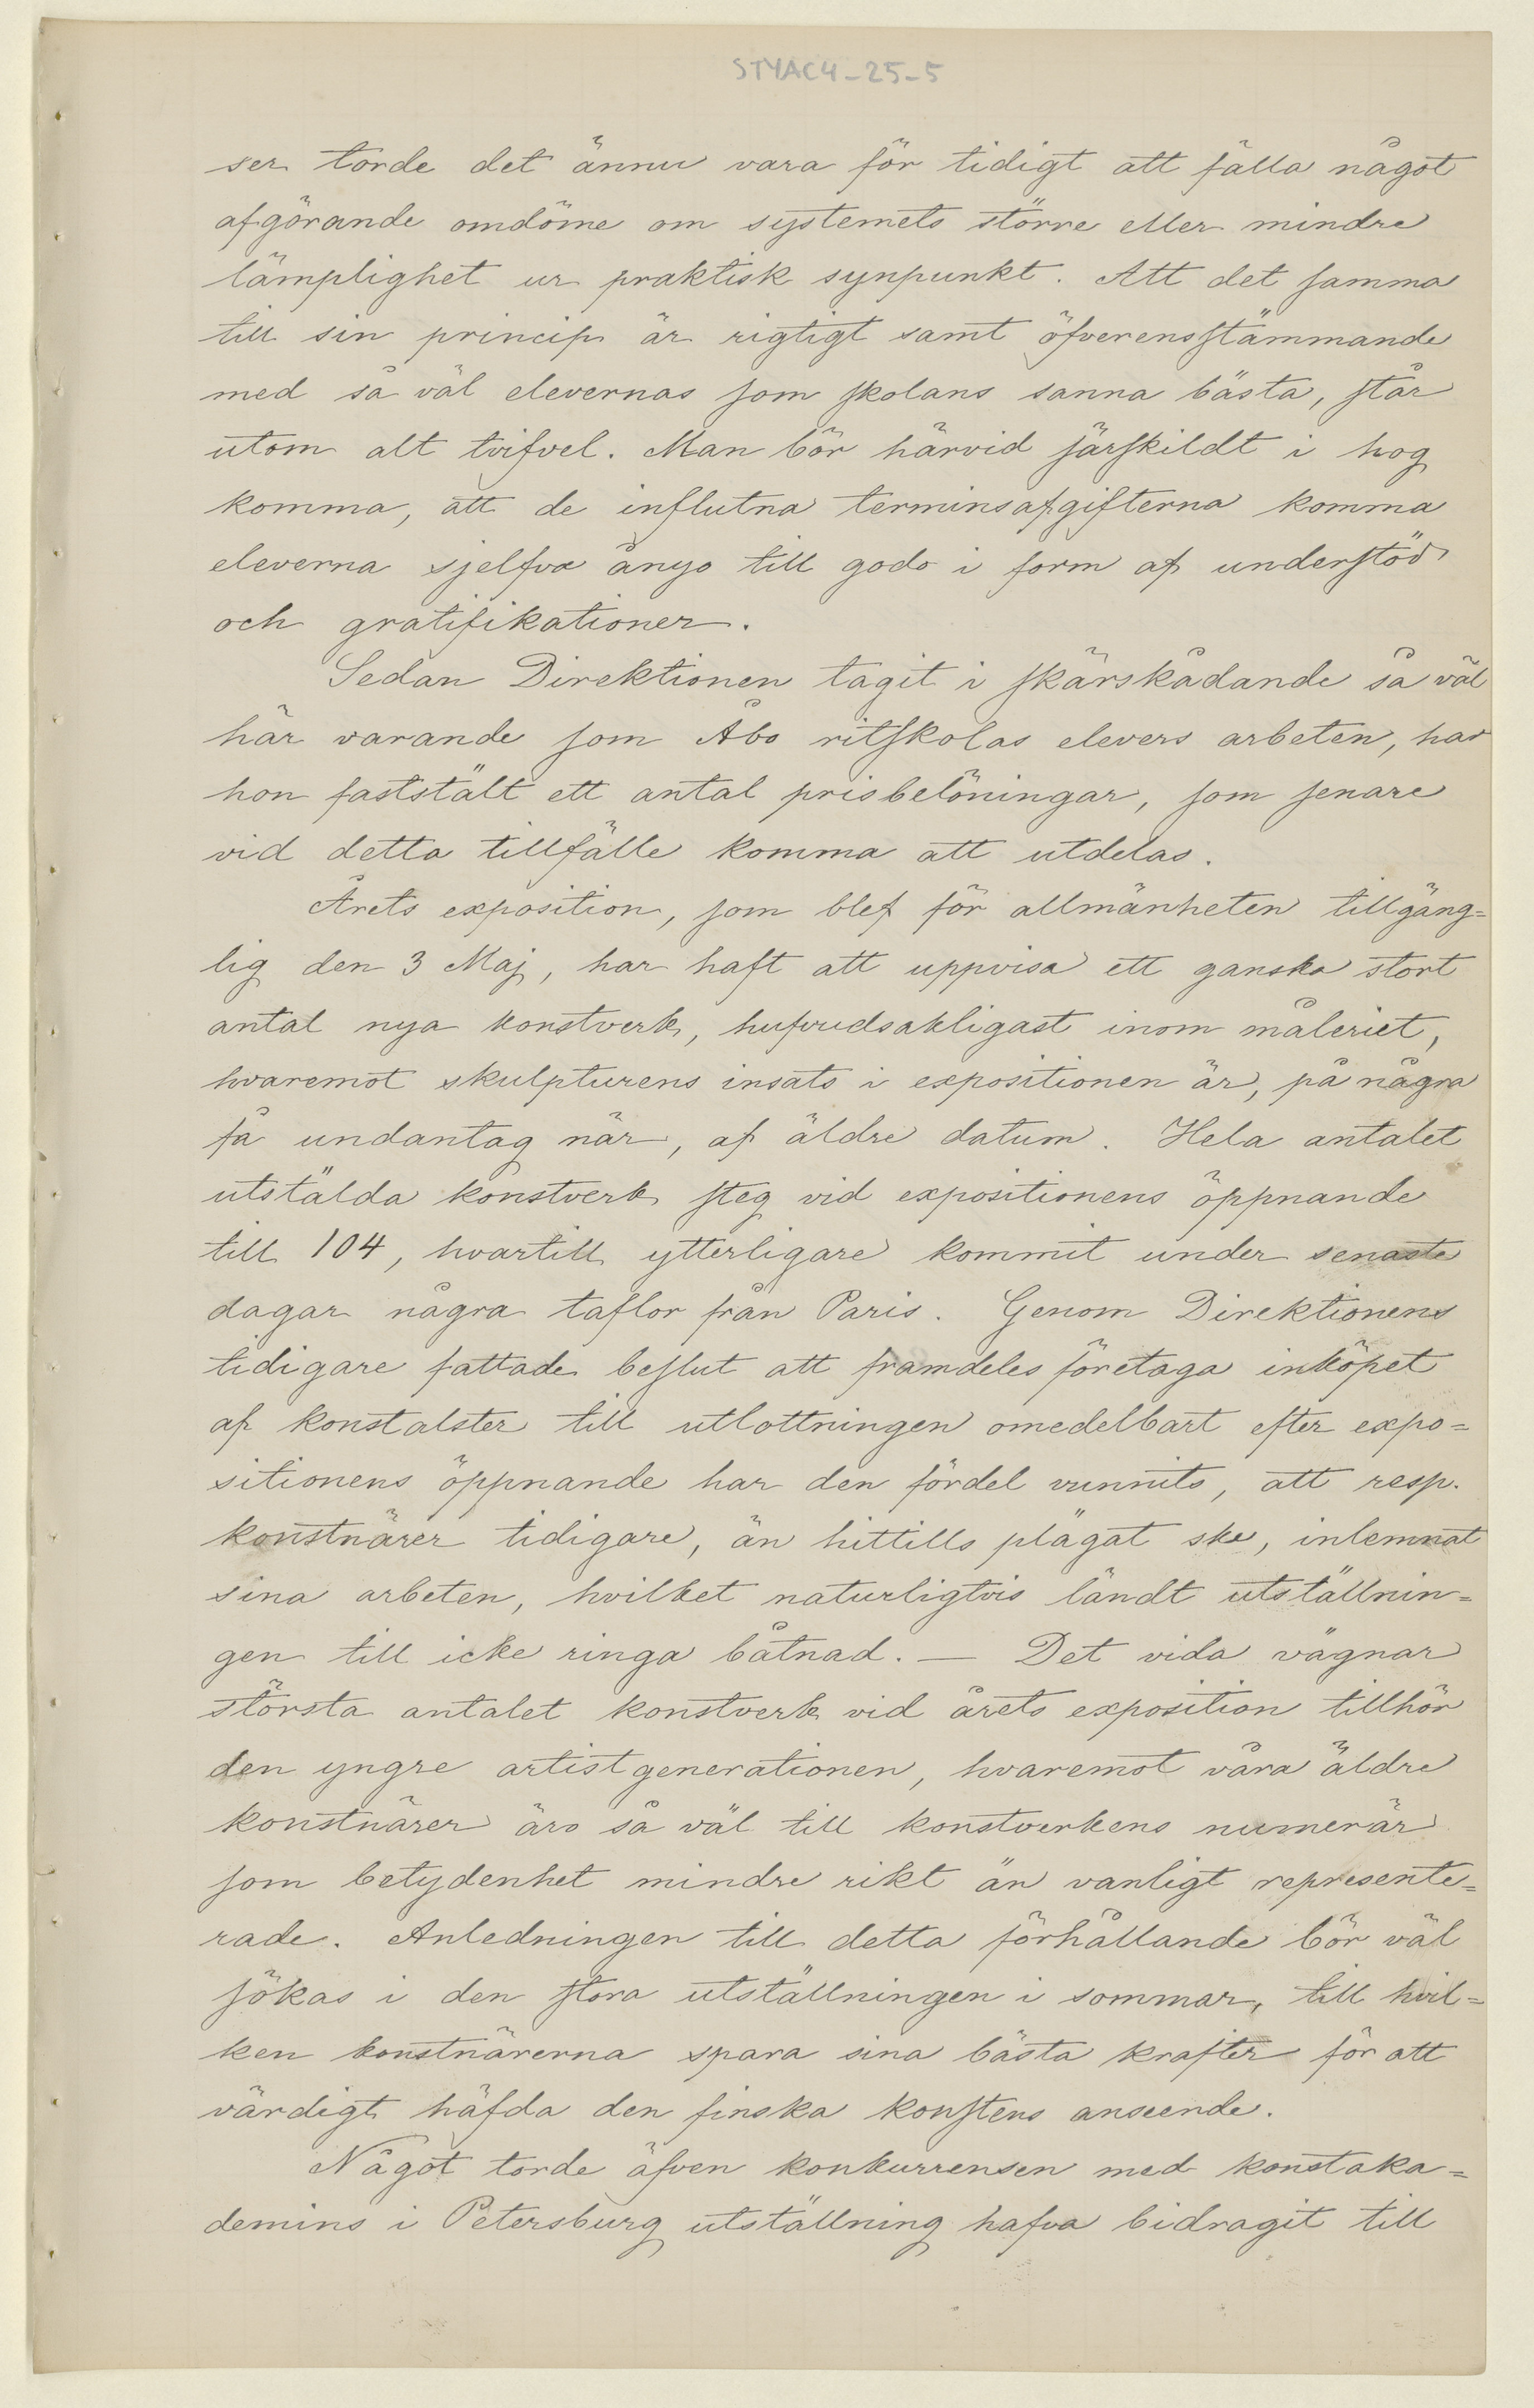 STYAC4-25-5
ser torde det ännu vara för tidigt att fälla något
afgörande omdöme om systemets större eller mindre
lämplighet ur praktisk synpunkt. Att det samma
till sin princip är rigtigt samt öfverensstämmande
med så väl elevernas som skolans sanna bästa, står
utom alt tvifvel. Man bör härvid särskildt i hog
komma, att de influtna terminsafgifterna komma
eleverna sjelfva ånyo till godo i form af understöd
och gratifikationer.
Sedan Direktionen tagit i skärskådande så väl
här varande som Åbo ritskolas elevers arbeten, har
hon faststält ett antal prisbelöningar, som senare
vid detta tillfälle komma att utdelas.
Årets exposition, som blef för allmänheten tillgäng=
lig den 3 Maj, har haft att uppvisa ett ganska stort
antal nya konstverk, hufvudsakligast inom måleriet,
hvaremot skulpturens insats i expositionen är, på några
få undantag när, af äldre datum. Hela antalet
utstälda konstverk steg vid expositionens öppnande
till 104, hvartill ytterligare kommit under senaste
dagar några taflor från Paris. Genom Direktionens
tidigare fattade beslut att framdeles företaga inköpet
af konstalster till utlottningen omedelbart efter expo=
sitionens öppnande har den fördel vunnits, att resp.
konstnärer tidigare, än hittills plägat ske, inlemnat
sina arbeten, hvilket naturligtvis ländt utställnin=
gen till icke ringa båtnad. — Det vida vägnar
största antalet konstverk vid årets exposition tillhör
den yngre artistgenerationen, hvaremot våra äldre
konstnärer äro så väl till konstverkens numerär
som betydenhet mindre rikt än vanligt represente=
rade. Anledningen till detta förhållande bör väl
sökas i den stora utställningen i sommar, till hvil=
ken konstnärerna spara sina bästa krafter för att
värdigt häfda den finska konstens anseende.
Något torde äfven konkurrensen med konstaka=
demins i Petersburg utställning hafva bidragit till